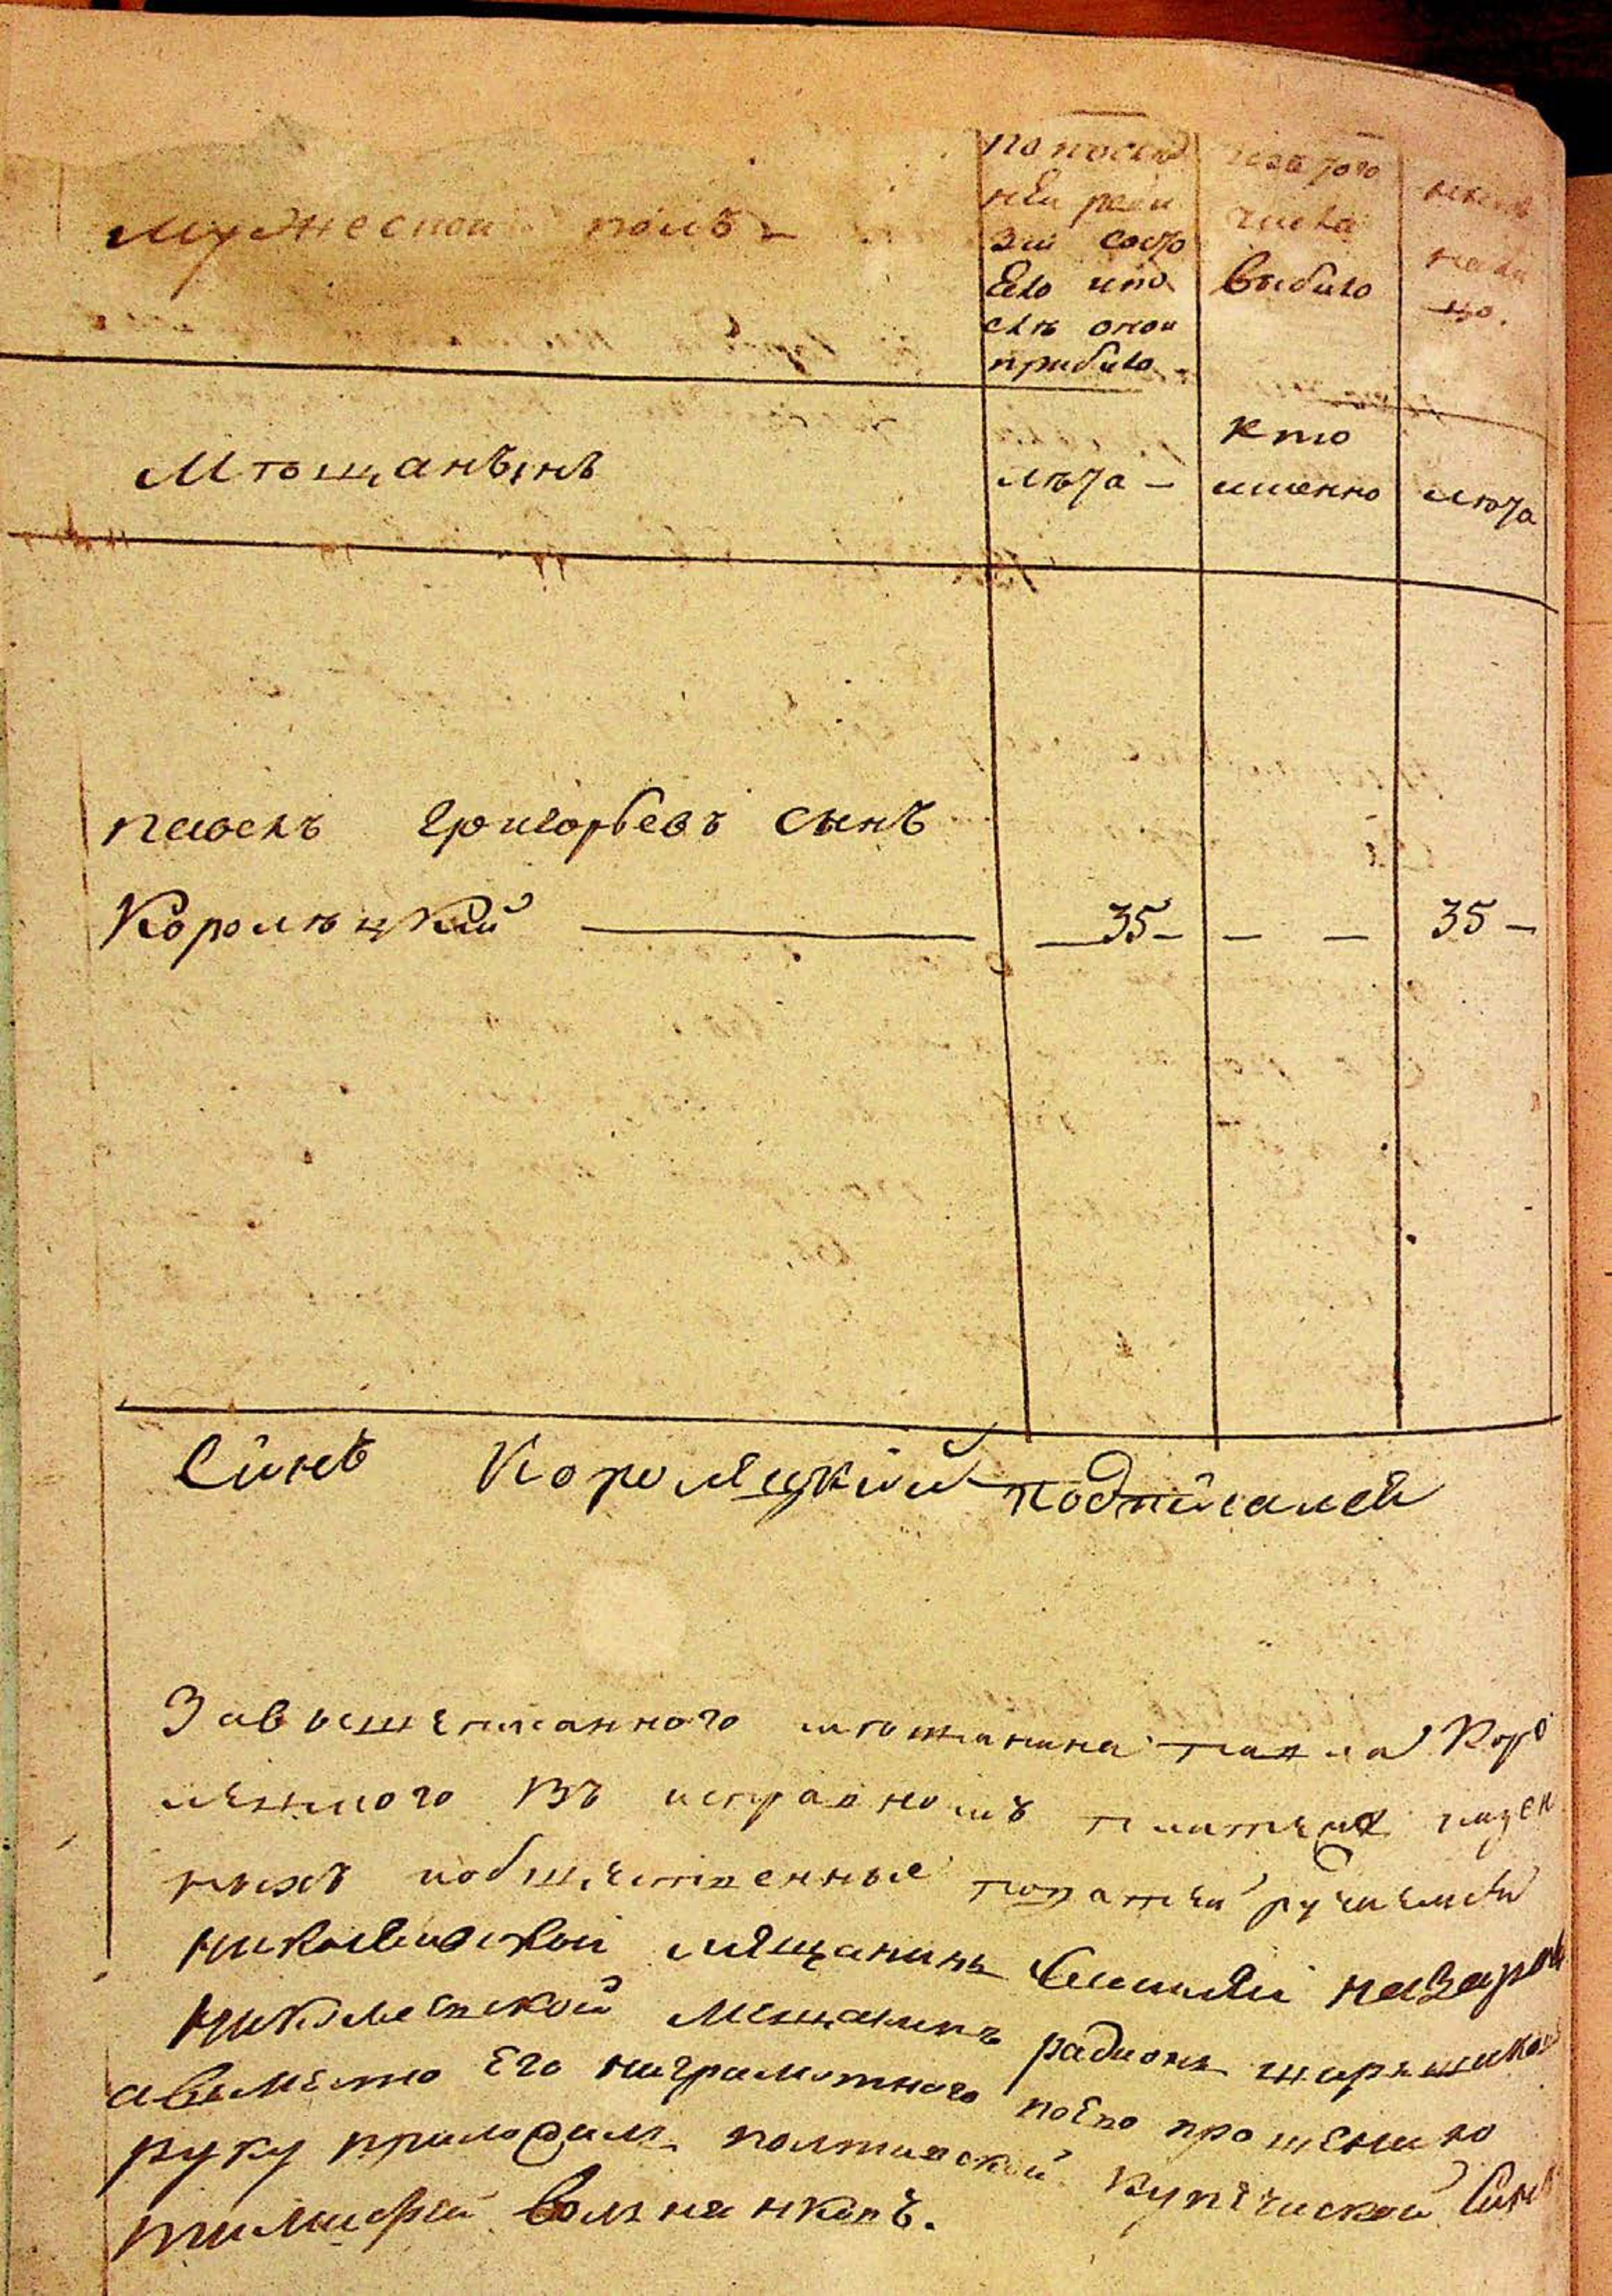 мужеской полъ
по послѣд
ней реви
зіи состо
Ело ипо
слѣ оной
прибило
изъ того
числа
выбило
нынѣ
на ли
цо.
Мѣщанѣнъ
лѣта
кто
именно
лѣта
павелъ Григорьевъ сынъ
Королѣцкій 35 35
Синъ Королецкий подписалей
За вышеписанного мѣщанина павла Коро
лецкого Въ исправномъ платеже казен
ныхъ иобщественные податей ручилися
николаевской мещанинъ назаров
николаевской мещанинъ радионъ
авместо Его ниграмотного поЕго прошению
руку приложилъ полтавской купеческой Синъ
тимофей